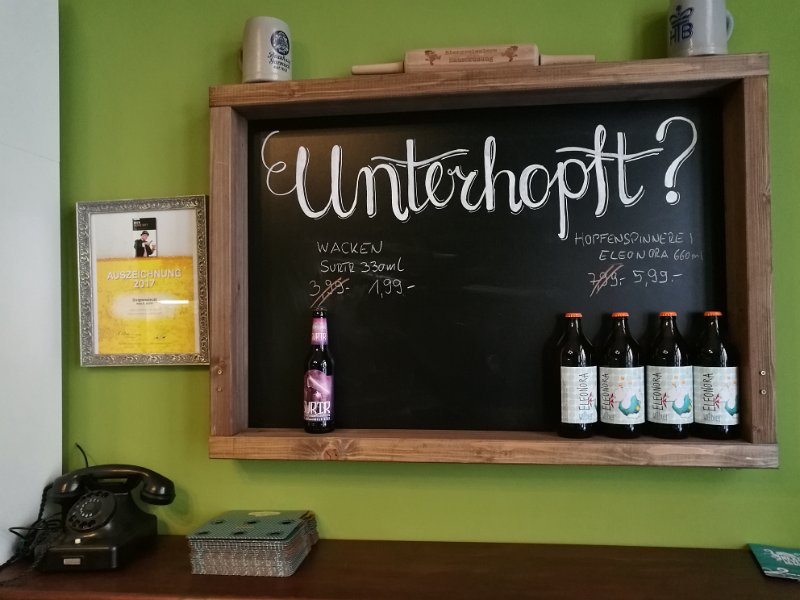 HB
Unterhopft?
WACKEN
SURTR 330ml
3,99,- 1,99,-
HOPFENSPINNEREI
ELEONORA 660ml
7,99,- 5,99,-
AUSZEICHNUNG
2017
SURTR
ELEONORA
ELEONORA
ELEONORA
ELEONORA